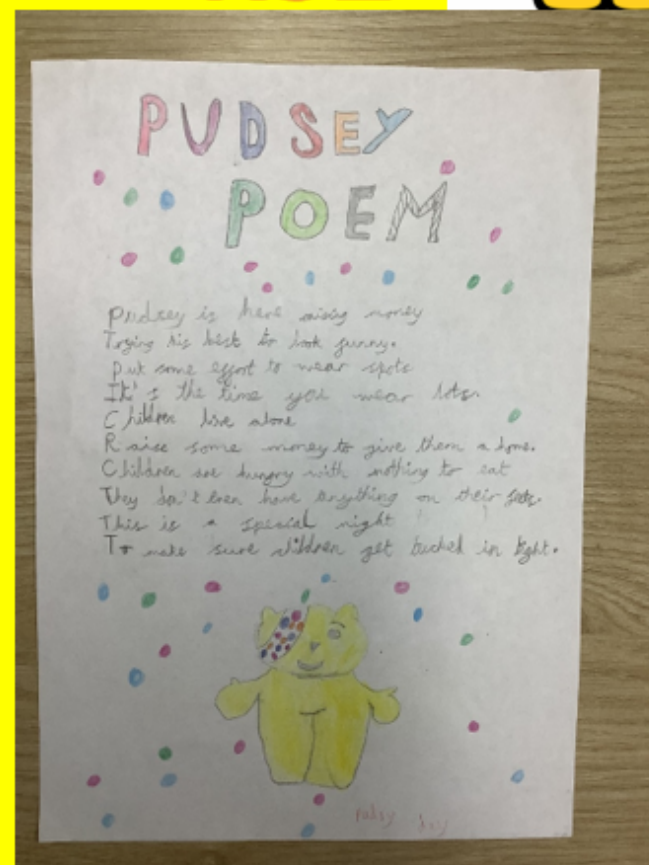 PUDSEY
POEM
Pudsey is here raising money
Trying his best to look funny.
Put some effort to wear spots
It's the time you wear lots.
Children live alone
Raise some money to give them a home.
Children are hungry with nothing to eat
They don't even have anything on their feets.
This is a special night
To make sure children get tucked in tight.